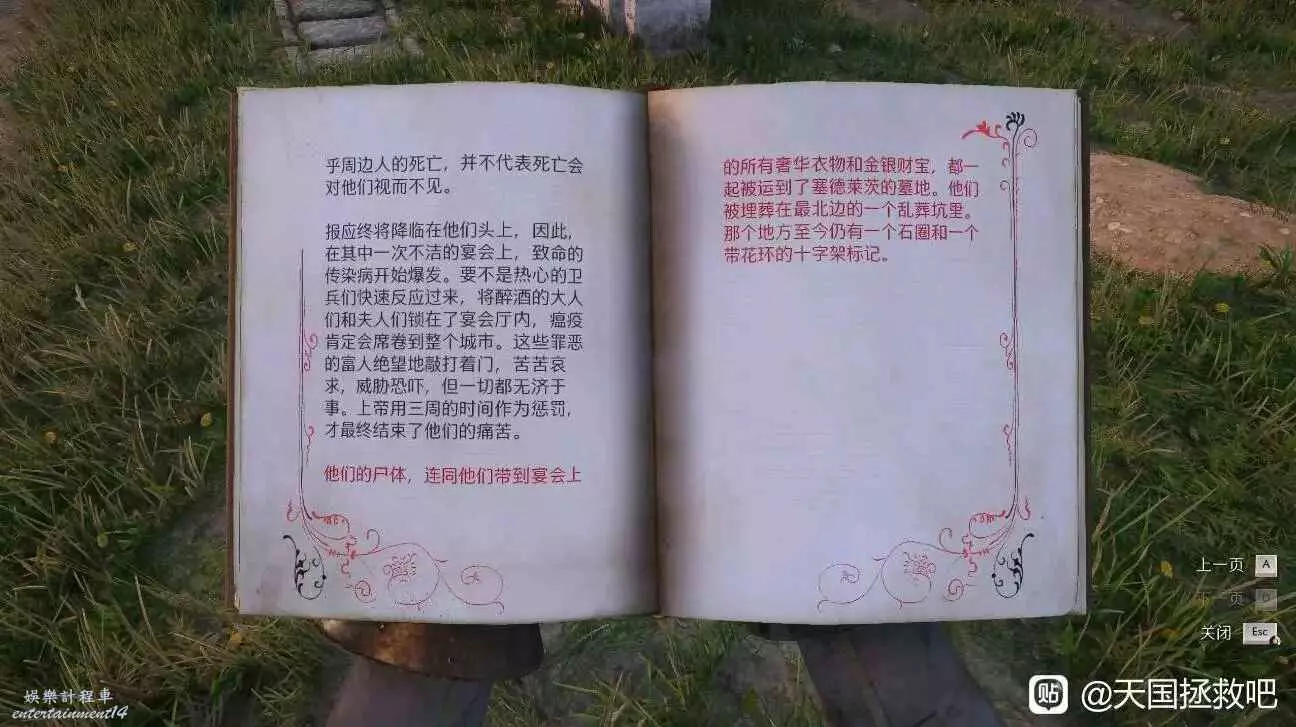 乎周边人的死亡，并不代表死亡会
对他们视而不见。
报应终将降临在他们头上，因此，
在其中一次不洁的宴会上，致命的
传染病开始爆发。要不是热心的卫
兵们快速反应过来，将醉酒的大人
们和夫人们锁在了宴会厅内，瘟疫
肯定会席卷到整个城市。这些罪恶
的富人绝望地敲打着门，苦苦哀
求，威胁恐吓，但一切都无济于
事。上帝用三周的时间作为惩罚，
才最终结束了他们的痛苦。
他们的尸体，连同他们带到宴会上
的所有奢华衣物和金银财宝，都一
起被运到了塞德莱茨的墓地。他们
被埋葬在最北边的一个乱葬坑里。
那个地方至今仍有一个石圈和一个
带花环的十字架标记。
上一页 A
下一页 D
关闭 Esc
娛樂計程車
entertainment14
贴 @天国拯救吧